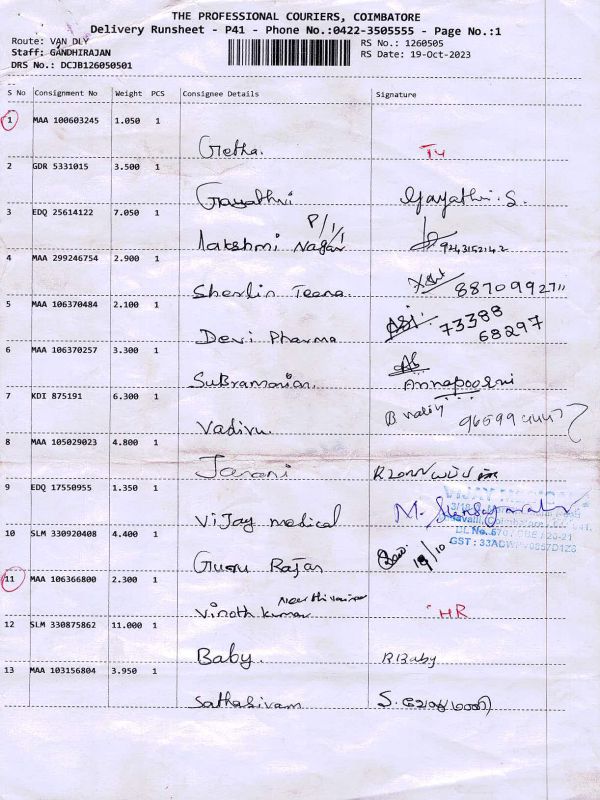 THE PROFESSIONAL COURIERS, COIMBATORE
Delivery Runsheet - P41 - Phone No.:0422-3505555 - Page No.:1
Route: VAN DLY
Staff: GANDHIRAJAN
DRS No.: DCJB126050501
RS No.: 1260505
RS Date: 19-Oct-2023
S No Consignment No Weight PCS Consignee Details Signature
1 MAA 100603245 1.050 1
Getha.
2 GDR 5331015 3.500 1
Gayathri Gayathri.S.
3 EDQ 25614122 7.050 1
P/1/1
Lakshmi Nagar 9243152142
4 MAA 299246754 2.900 1
Sherlin Teena 8870992711
5 MAA 106370484 2.100 1
Devi Pharma 73388
68297
6 MAA 106370257 3.300 1
Subramanian. Annapoorni
7 KDI 875191 6.300 1
Vadivu.
8 MAA 105029023 4.800 1
Janani
9 EDQ 17550955 1.350 1
Vijay medical M.
10 SLM 330920408 4.400 1
Guru Rajan 19/10
11 MAA 106366800 2.300 1
Vinoth kumar HR
12 SLM 330875862 11.000 1
Baby. R Baby
13 MAA 103156804 3.950 1
Sathasivam